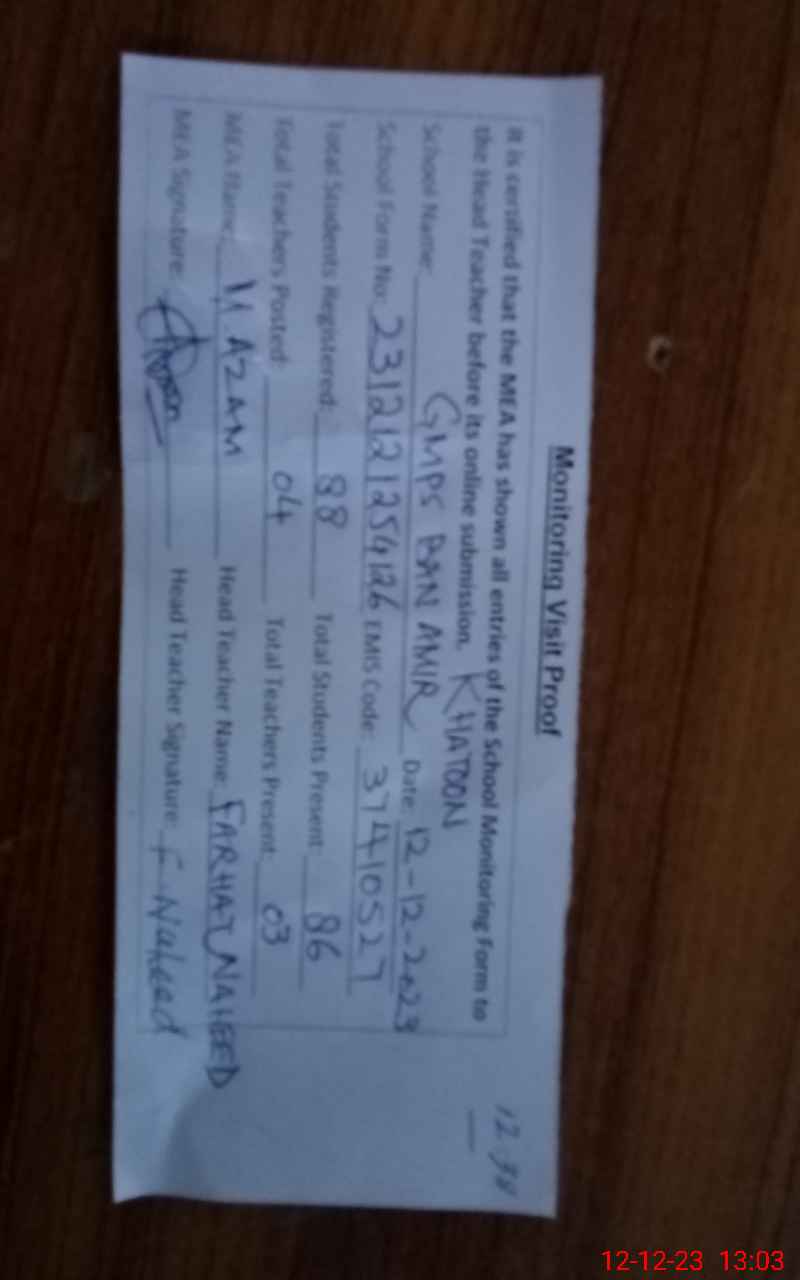 Monitoring Visit Proof
It is certified that the MEA has shown all entries of the School Monitoring Form to
the Head Teacher before its online submission.
School Name: GMPS BAN AMIR KHATOON Date: 12-12-2023
School Form No: 2312121254126 EMIS Code: 37410527
Total Students Registered: 88 Total Students Present: 86
Total Teachers Posted: 04 Total Teachers Present: 03
MEA Name: M AZAM Head Teacher Name: FARHAT NAHEED
MEA Signature: Head Teacher Signature: F Naheed
12-12-23 13:03